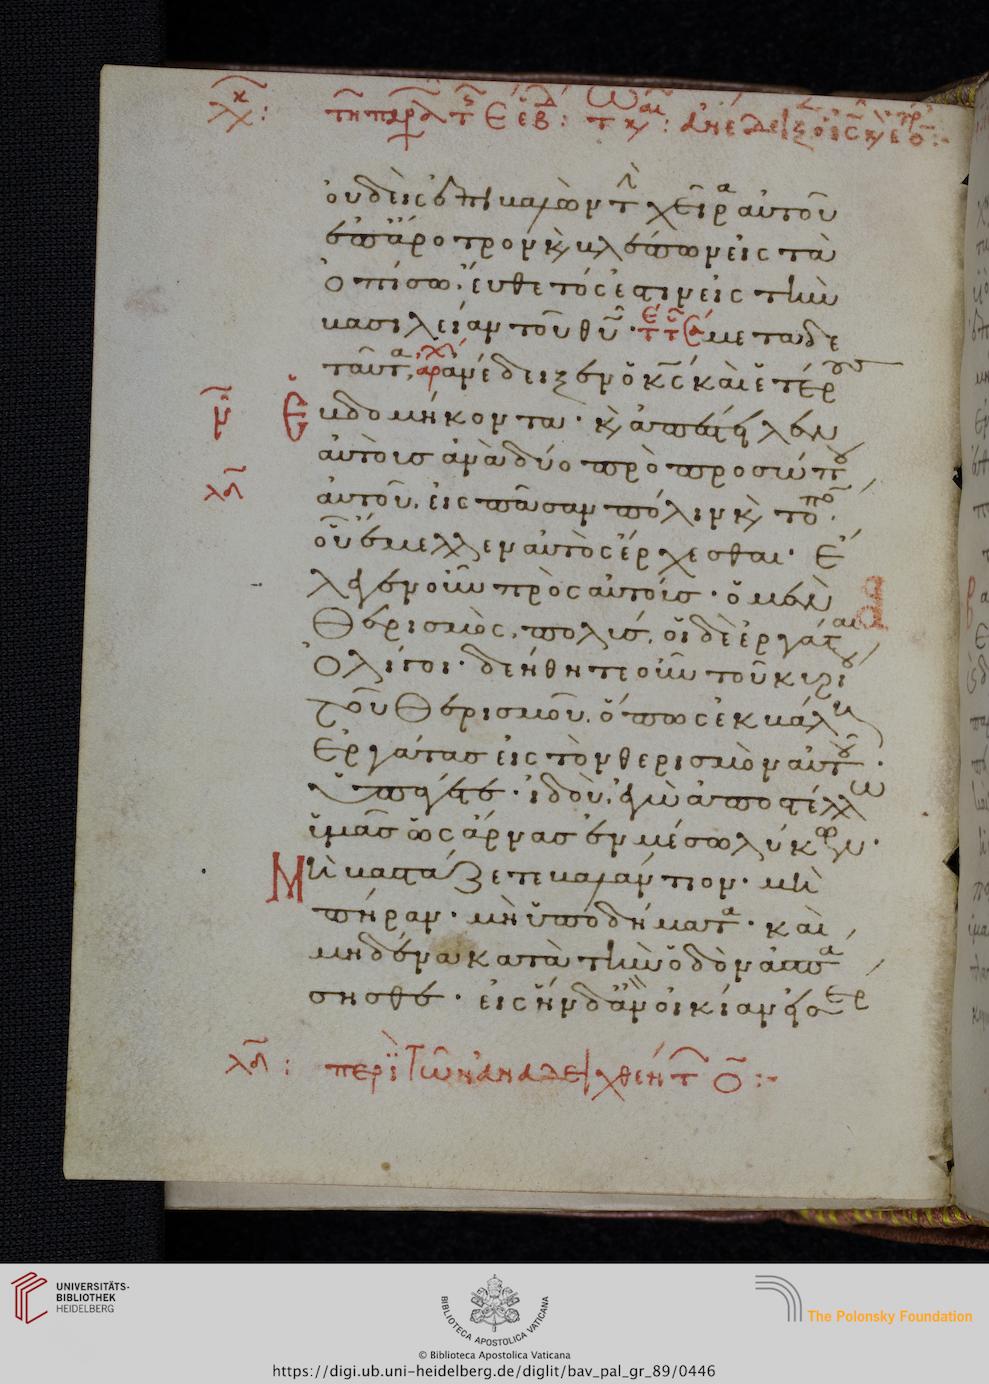 οὐδεὶς ἐπιβαλὼν τ χεῖρα αὐτοῦ
ἐπ ἄροτρον κ βλέπων εἰς τὰ
ὀπίσω, εὔθετός ἐστιν εἰς τὴν
βασιλείαν τοῦ θυ · μετα δε
ταῦτα, ἀνέδειξεν ὁ κς καὶ ἑτέρους
ἑβδομήκοντα · κ ἀπέστειλεν
αὐτοὺσ ἀνὰ δύο πρὸ προσώπου
αὐτοῦ, εἰς πᾶσαν πόλιν κ τόπον·
οὗ ἔμελλεν αὐτὸς ἔρχεσθαι · ἔ
λεγεν οὖν πρὸς αὐτούσ · ὁ μὲν
θερισμὸς, πολύσ, οἱ δὲ ἐργάται
ὀλίγοι · δεήθητε οὖν τοῦ κυρίου
τοῦ θερισμοῦ, ὅπως ἐκβάλῃ
ἐργάτας εἰς τὸν θερισμὸν αὐτοῦ ·
ὑπάγετε · ἰδοὺ, ἐγὼ ἀποστέλλω
ὑμᾶσ ὡς ἄρνασ ἐν μέσω λύκων ·
Μὴ βαστάζετε βαλάντιον · μὴ
πήραν · μὴ ὑποδήματα · καὶ
μηδένα κατὰ τὴν ὁδὸν ἀσπά
σησθε · εἰς ἣν δ ἂν οἰκίαν εἰσέρ
περὶ τῶν ἀναδειχθέντ ο :-
UNIVERSITÄTS-
BIBLIOTHEK
HEIDELBERG
BIBLIOTECA APOSTOLICA VATICANA
The Polonsky Foundation
© Biblioteca Apostolica Vaticana
https://digi.ub.uni-heidelberg.de/diglit/bav_pal_gr_89/0446